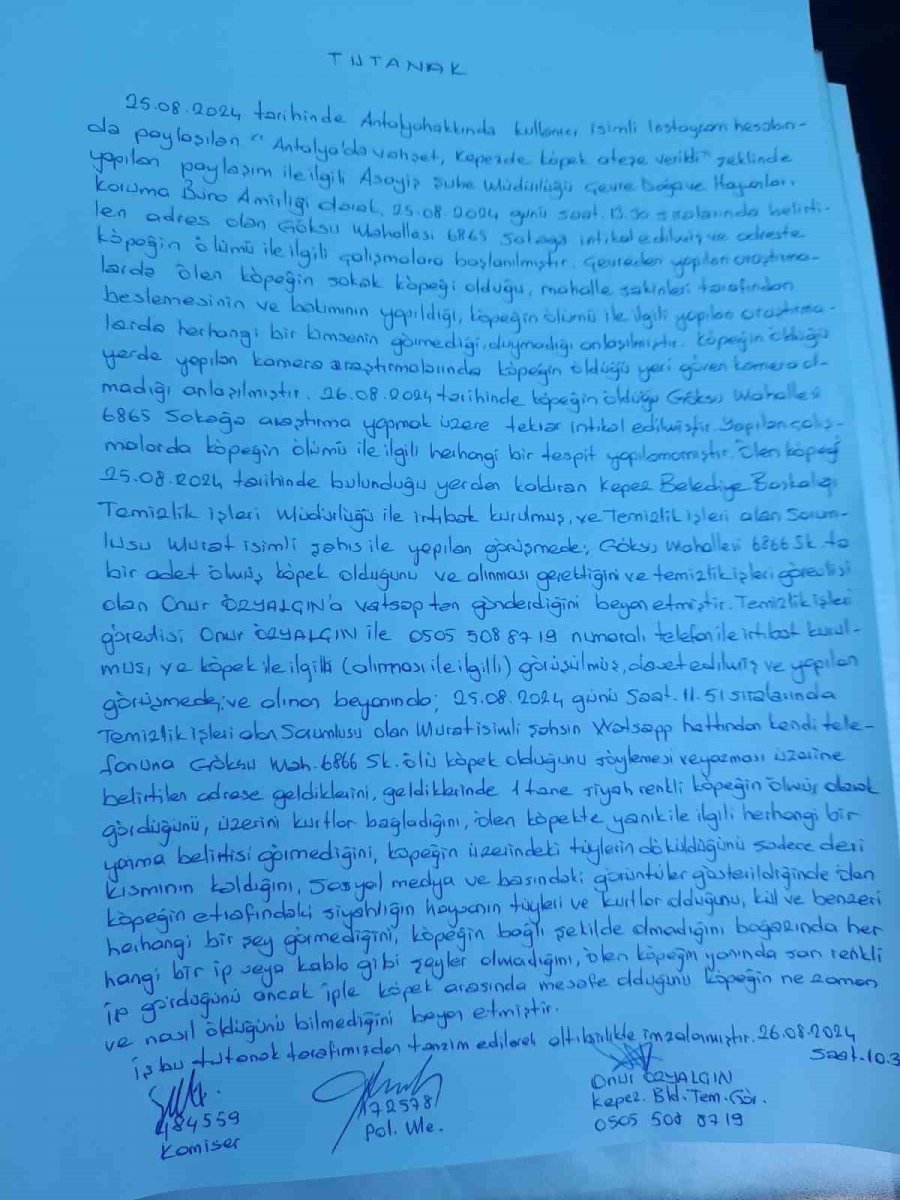 TUTANAK
25.08.2024 tarihinde Antalyahakkında kullanıcı isimli Instagram hesabın-
da paylaşılan "Antalya'da vahşet, Kepezde köpek ateşe verildi" şeklinde
yapılan paylaşım ile ilgili Asayiş Şube Müdürlüğü Çevre Doğa ve Hayvanları
Koruma Büro Amirliği olarak, 25.08.2024 günü saat.13.30 sıralarında belirti-
len adres olan Göksu Mahallesi 6865 Sokağa intikal edilmiş ve adreste
köpeğin ölümü ile ilgili çalışmalara başlanılmıştır. Çevreden yapılan araştırma-
larda ölen köpeğin sokak köpeği olduğu, mahalle sakinleri tarafından
beslemesinin ve bakımının yapıldığı, köpeğin ölümü ile ilgili yapılan araştırma-
larda herhangi bir kimsenin görmediği, duymadığı anlaşılmıştır. Köpeğin öldüğü
yerde yapılan kamera araştırmalarında köpeğin öldüğü yeri gören kamera ol-
madığı anlaşılmıştır. 26.08.2024 tarihinde köpeğin öldüğü Göksu Mahallesi
6865 Sokağa araştırma yapmak üzere tekrar intikal edilmiştir. Yapılan çalış-
malarda köpeğin ölümü ile ilgili herhangi bir tespit yapılamamıştır. Ölen köpeği
25.08.2024 tarihinde bulunduğu yerden kaldıran Kepez Belediye Başkalığı
Temizlik işleri Müdürlüğü ile irtibat kurulmuş, ve Temizlik işleri alan Sorum-
lusu Murat isimli şahıs ile yapılan görüşmede; Göksu Mahallesi 6866 Sk. ta
bir adet ölmüş köpek olduğunu ve alınması gerektiğini ve temizlik işleri görevlisi
olan Onur ÖZYALGIN'a vatsap ten gönderdiğini beyan etmiştir. Temizlik işleri
görevlisi Onur ÖZYALGIN ile 0505 508 87 19 numaralı telefon ile irtibat kurul-
muş, ve köpek ile ilgili (alınması ile ilgilli) görüşülmüş, davet edilmiş ve yapılan
görüşmede; ve alınan beyanında; 25.08.2024 günü Saat. 11.51 sıralarında
Temizlik işleri alan Sorumlusu olan Murat isimli şahsın Watsapp hattından kendi tele-
fonuna Göksu Mah. 6866 Sk. ölü köpek olduğunu söylemesi ve yazması üzerine
belirtilen adrese geldiklerini, geldiklerinde 1 tane siyah renkli köpeğin ölmüş olarak
gördüğünü, üzerini kurtlar bağladığını, ölen köpekte yanık ile ilgili herhangi bir
yanma belirtisi görmediğini, köpeğin üzerindeki tüylerin döküldüğünü sadece deri
kısmının kaldığını, Sosyal medya ve basındaki görüntüler gösterildiğinde ölen
köpeğin etrafındaki siyahlığın hayvanın tüyleri ve kurtlar olduğunu, kül ve benzeri
herhangi bir şey görmediğini, köpeğin bağlı şekilde olmadığını boğazında her
hangi bir ip veya kablo gibi şeyler olmadığını, ölen köpeğin yanında sarı renkli
ip gördüğünü ancak iple köpek arasında mesafe olduğunu köpeğin ne zaman
ve nasıl öldüğünü bilmediğini beyan etmiştir.
İş bu tutanak tarafımızdan tanzim edilerek altı birlikte imzalanmıştır. 26.08.2024
Saat.10.3
484559
Komiser
172578
Pol. Me.
Onur ÖZYALGIN
Kepez. Bld. Tem. Gör.
0505 508 87 19